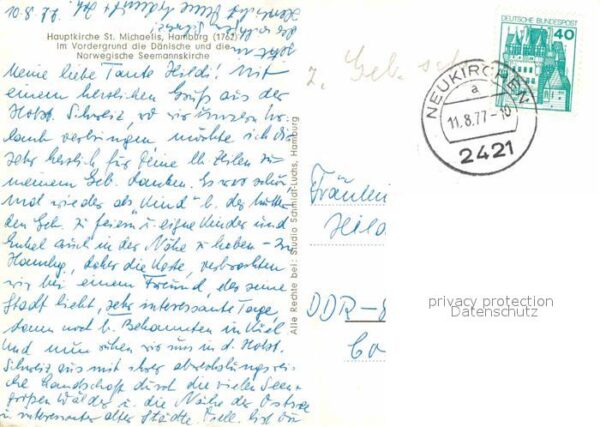 10.8.77
Hauptkirche St. Michaelis, Hamburg (1762)
Im Vordergrund die Dänische und die
Norwegische Seemannskirche
Meine liebe Tante Hildi! Mit
einem herzlichen Gruß aus der
Holst. Schweiz, wo wir unseren Ur-
laub verbringen möchte ich dir
sehr herzlich für Deine lb. Zeilen zu
meinem Geb. danken. Es war schön
mal wieder als Kind b. der Mutter
den Geb. zu feiern u. eigne Kinder und
Enkel auch in der Nähe z. haben - In
Hambg, daher die Karte, verbrachten
wir bei einem Freund, der seine
Stadt liebt, sehr interessante Tage,
dann noch b. Bekannten in Kiel
und nun ruhen wir uns in d. Holst.
Schweiz aus mit ihrer abwechslungsrei-
che Landschaft durch die vielen Seen
großen Wälder u. die Nähe der Ostsee
u. interessanter alter Städte.
Alle Rechte bei: Studio Schmidt-Luchs, Hamburg
z. Geb.
DEUTSCHE BUNDESPOST
40
NEUKIRCHEN
a
11.8.77-10
2421
Fräulein
DDR-
privacy protection
Datenschutz